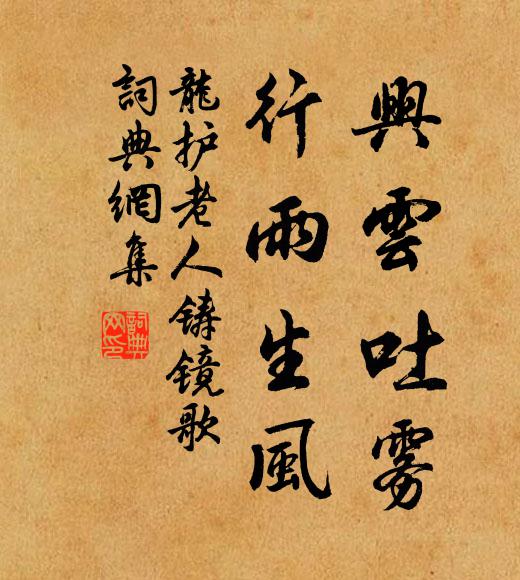 興雲吐雾
行雨生風
龍护老人铸镜歌
詞典網集
詞典網印